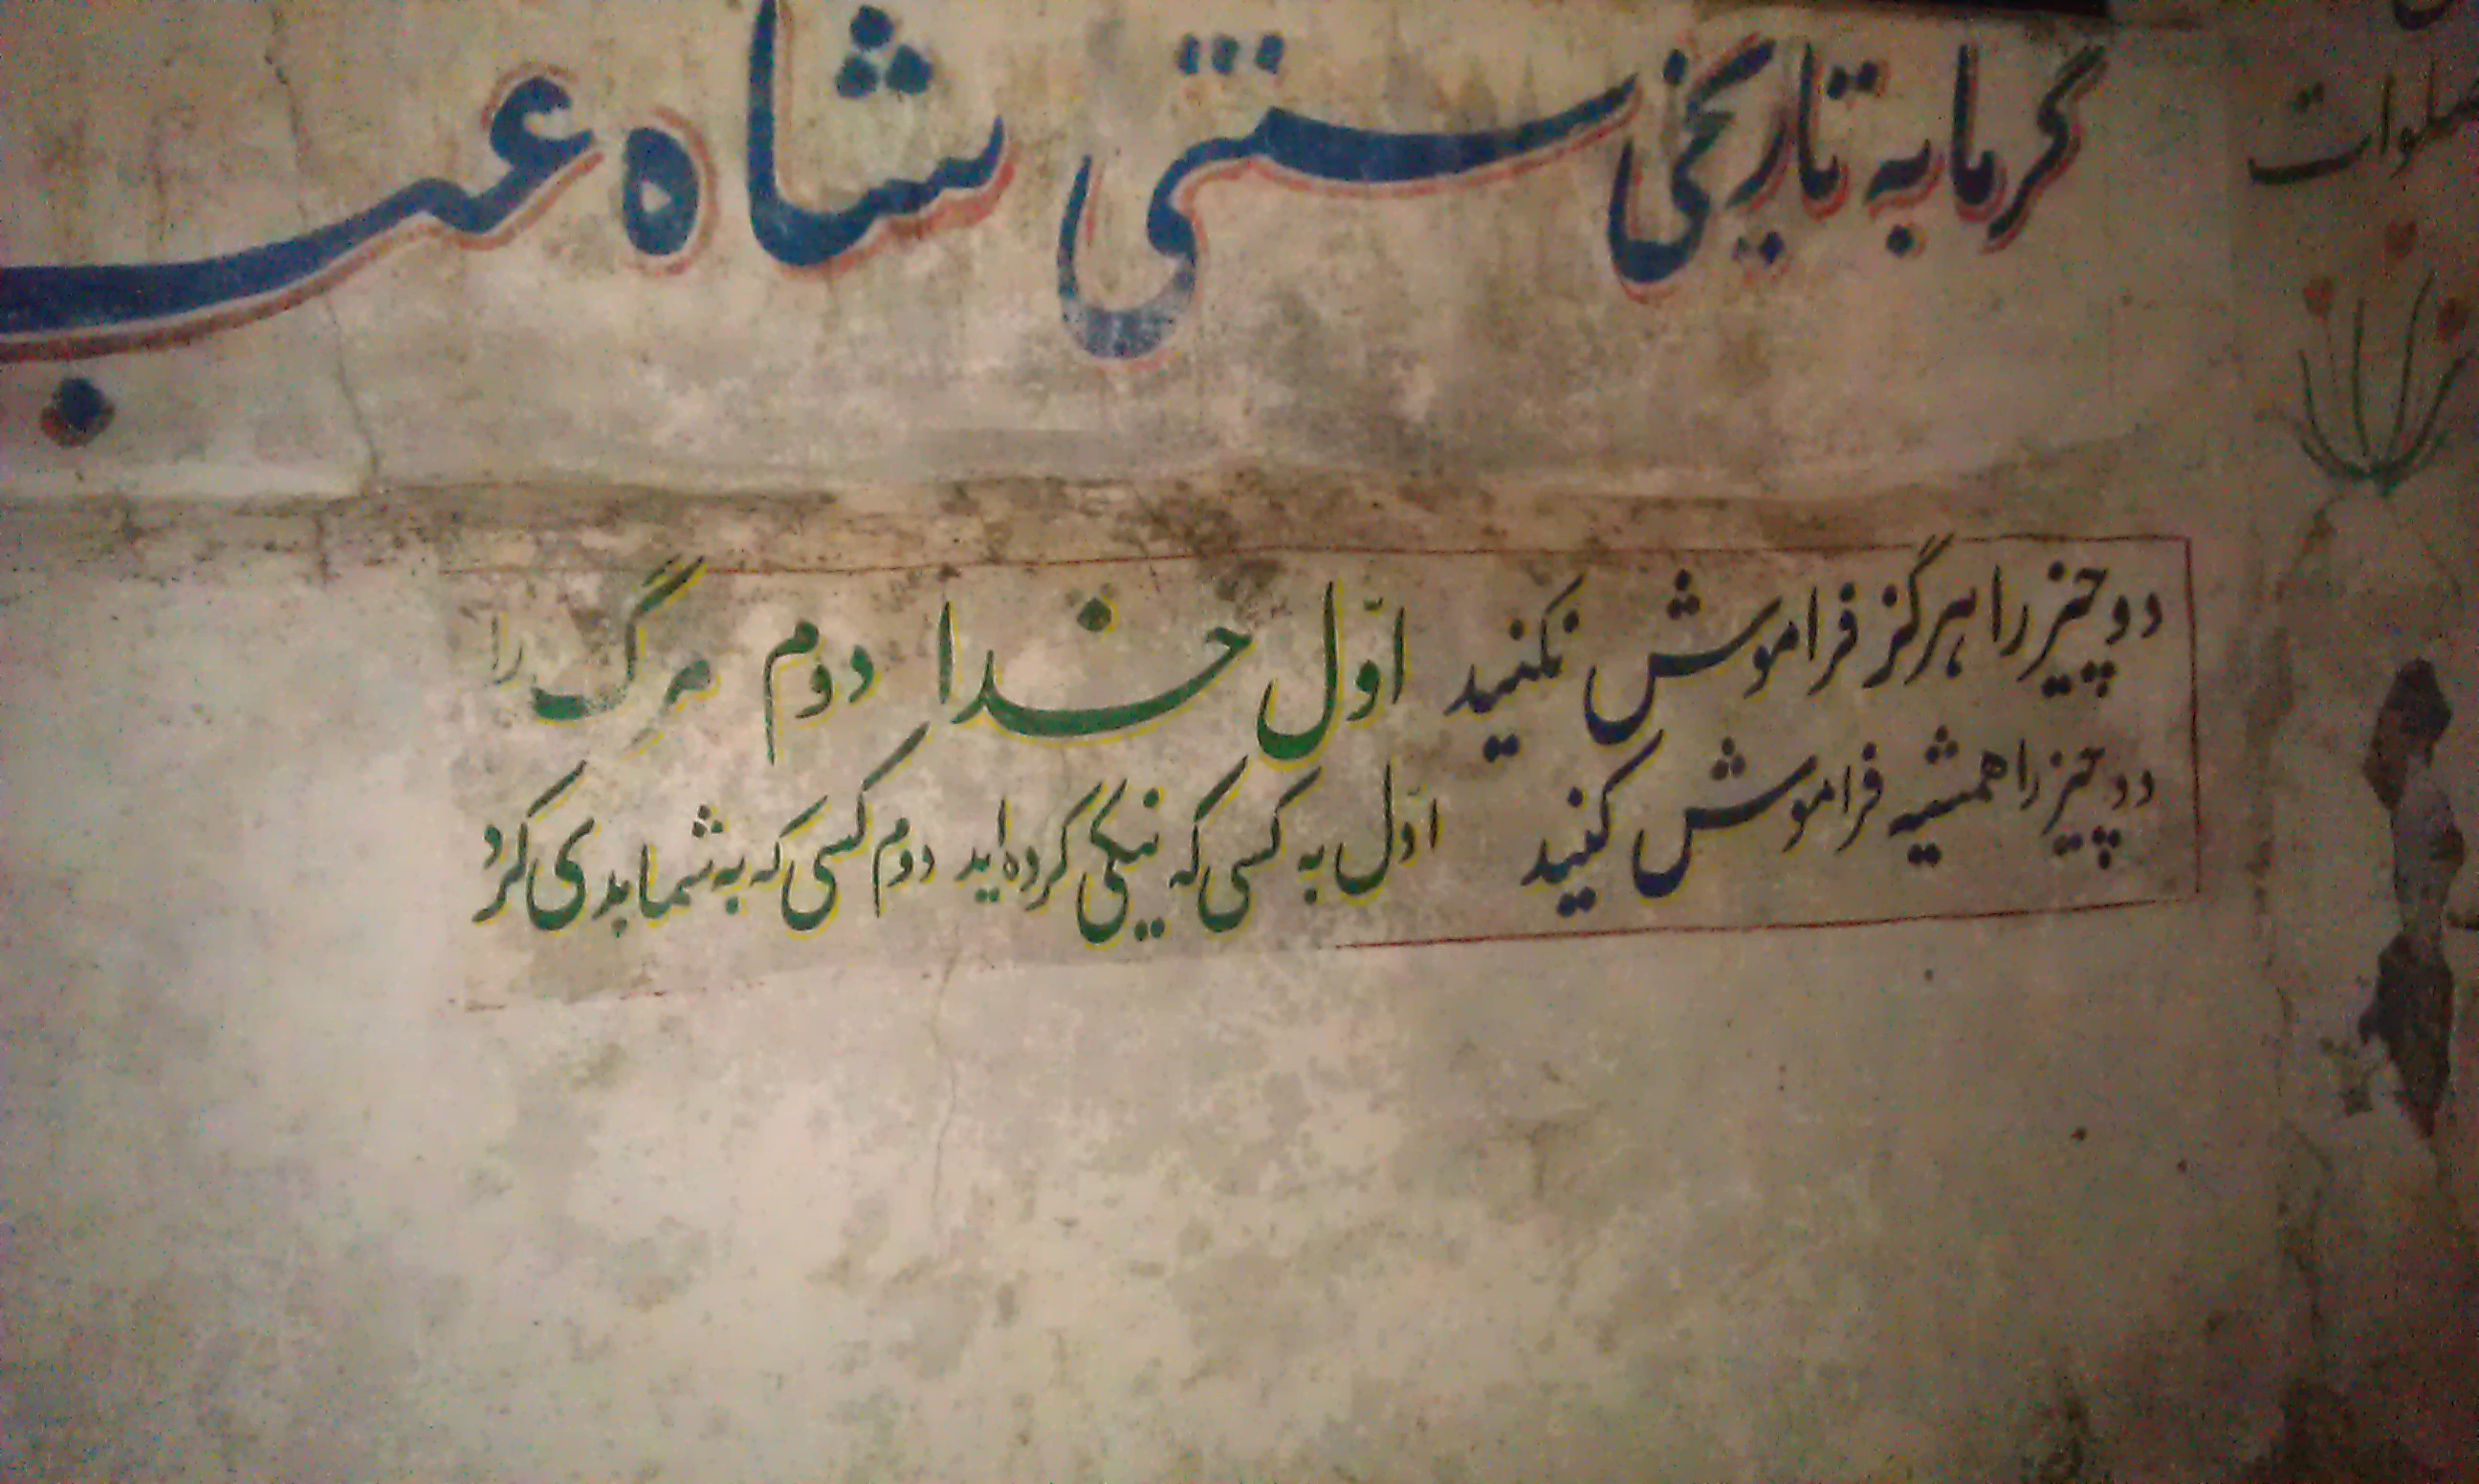 گرمابه تاریخی سنتی شاه عب
صلوات
دو چیز را هرگز فراموش نکنید اوّل خدا دوم مرگ را
دو چیز را همشیه فراموش کنید اوّل به کسی که نیکی کرده اید دوم کسی که به شما بدی کرد